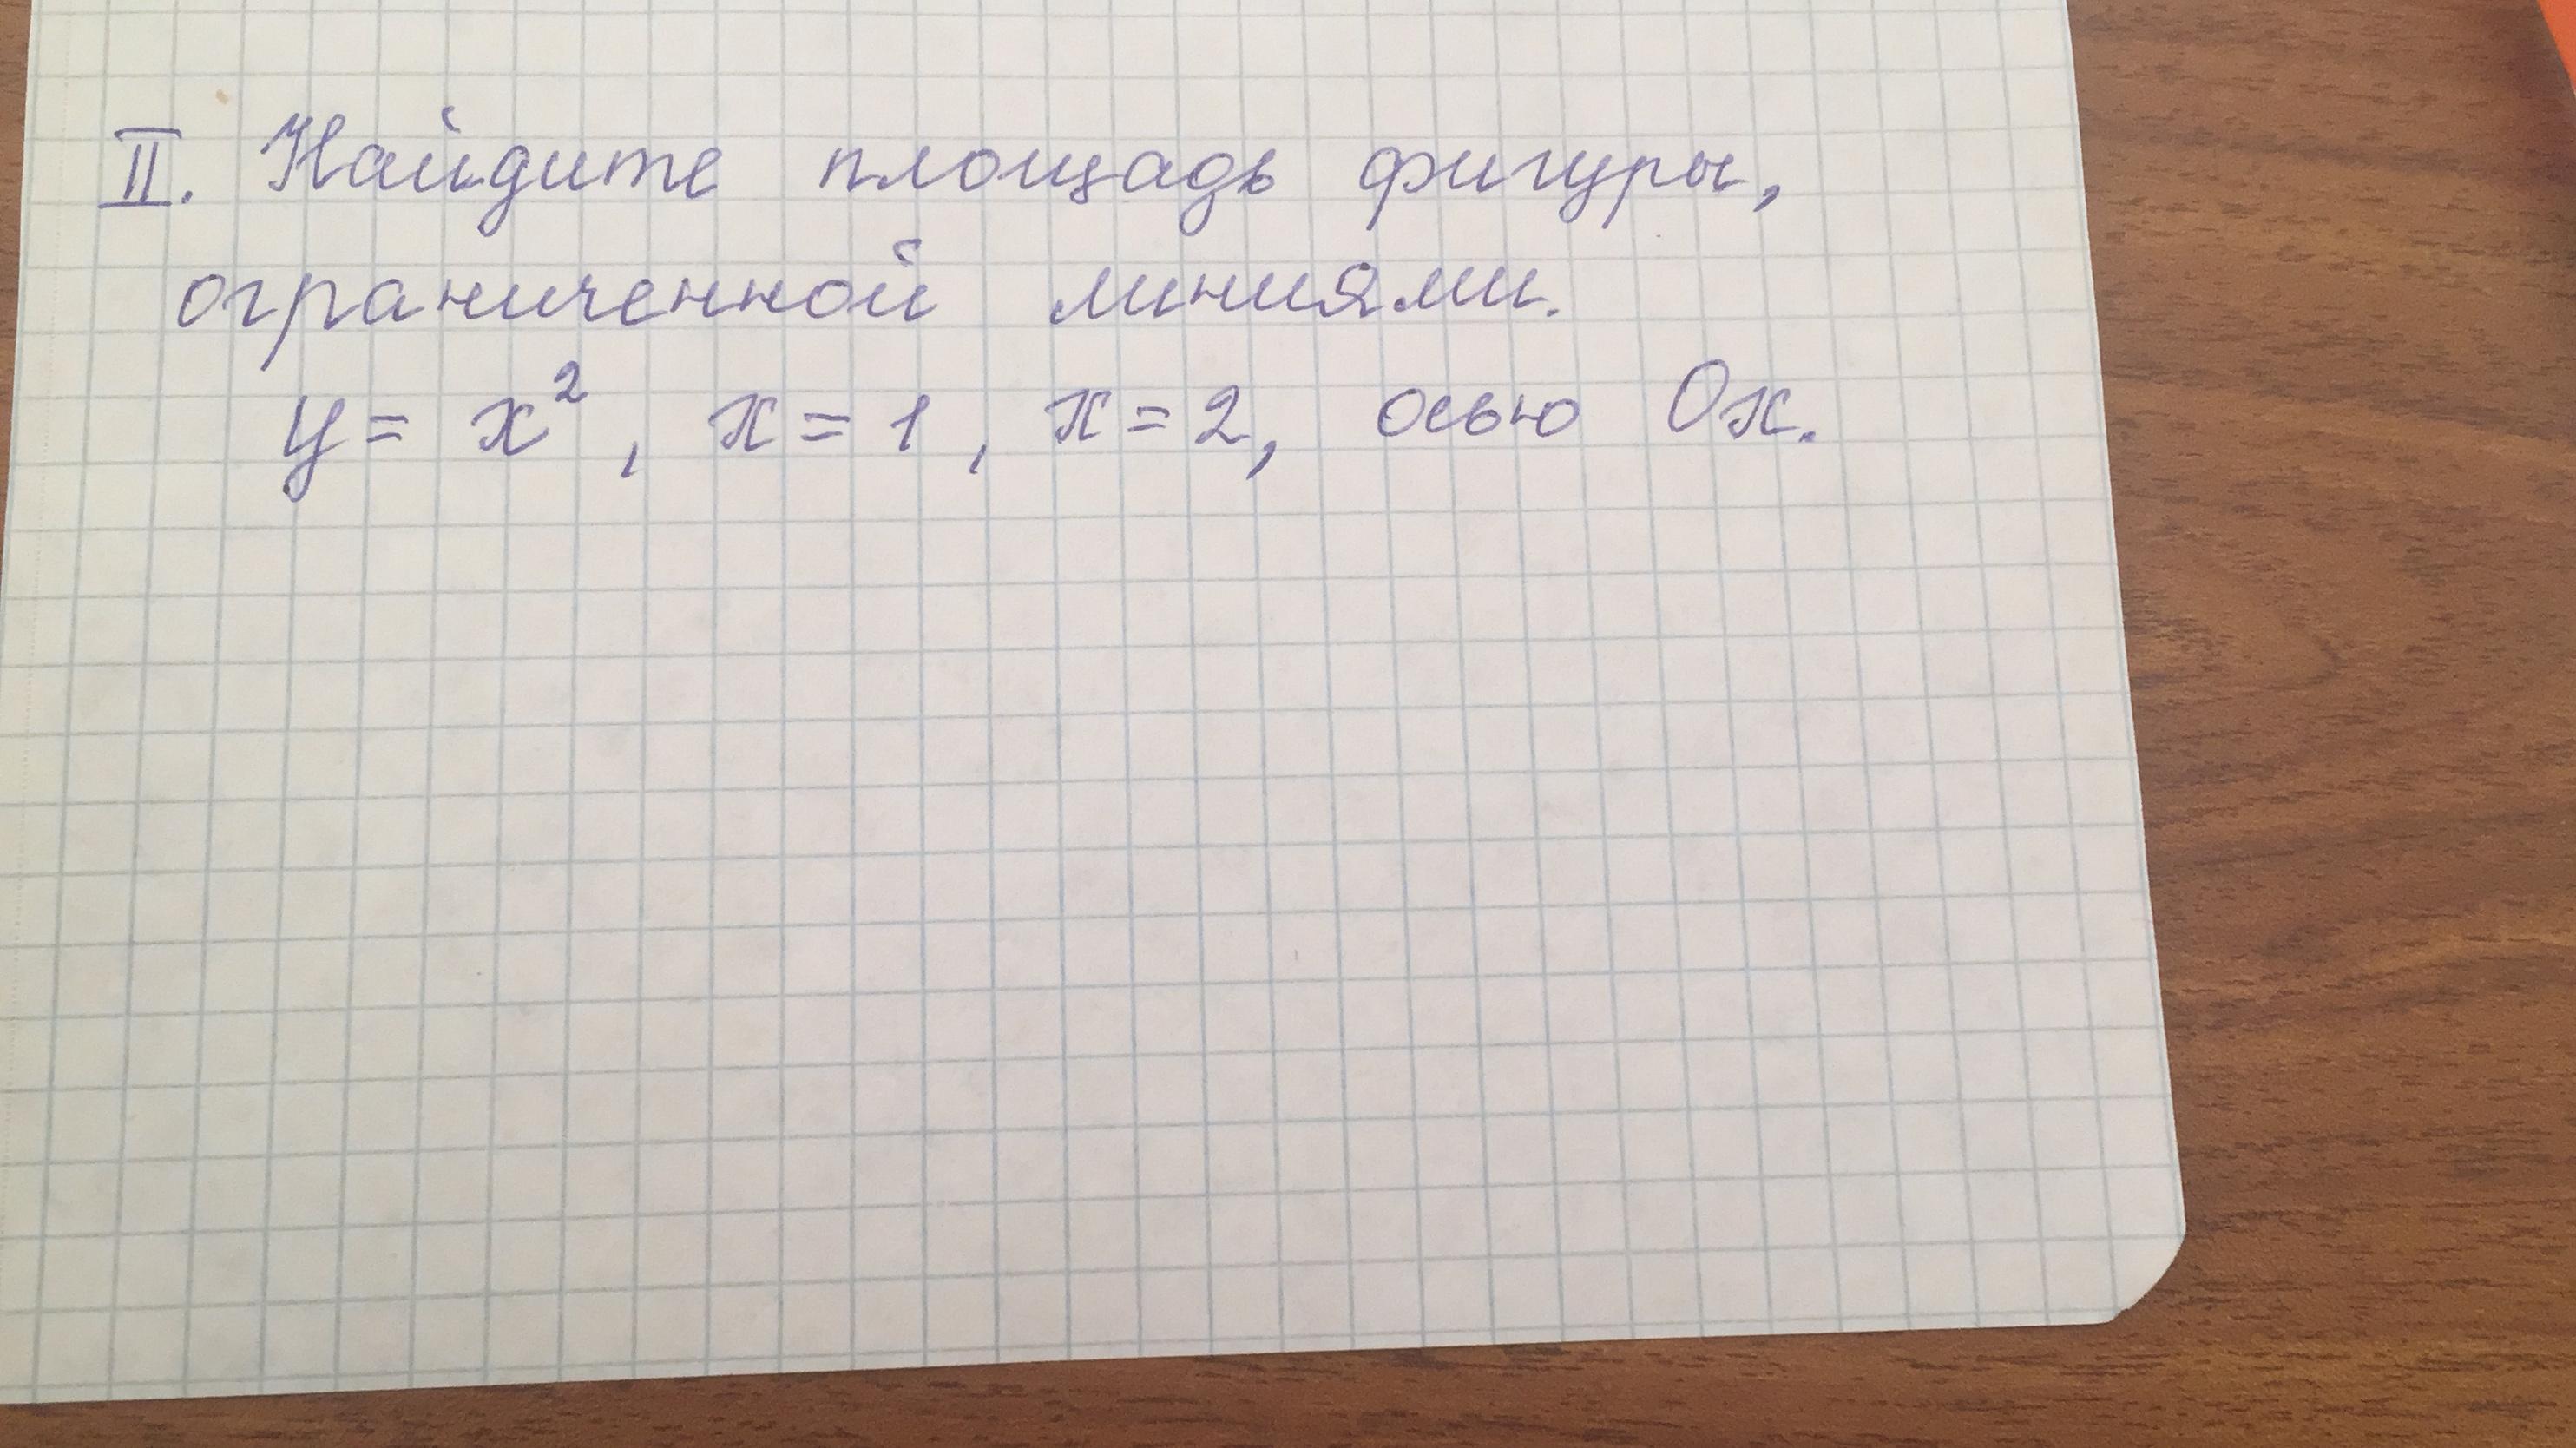 II. Найдите площадь фигуры,
ограниченной линиями.
y = x², x = 1, x = 2, осью Ox.